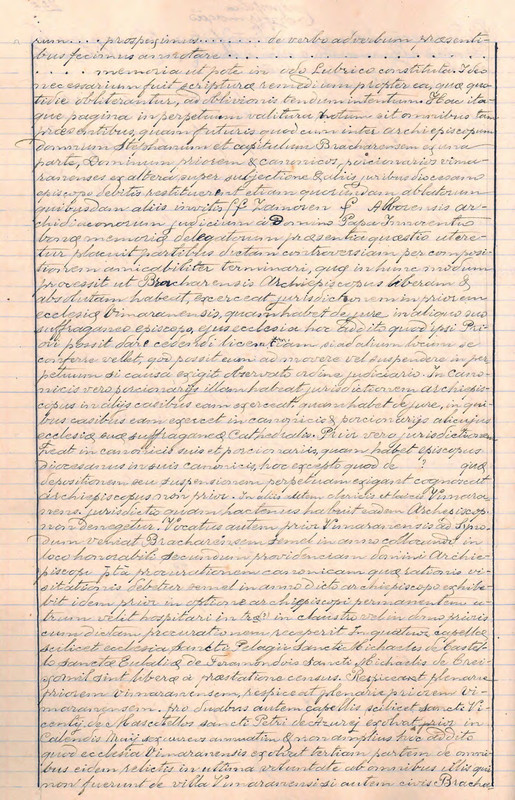 rum .... prospeximus ........ de verbo ad verbum præsenti-
bus fecimus annotare ..................
...... memoria ut pote in udo Lubrico constituta. Ideo
necessarium fuit scripturæ remedium propter ea, quæ quo-
tidie obliterantur, ad oblivionis tendunt intentum. Hac ita-
que pagina in perpetuum valitura notum sit omnibus tam
præsentibus, quam futuris quod cum inter archiepiscopum
domnum Stephanum et capitulum Bracharensem ex una
parte, Dominum priorem & canonicos, porcionarios vima-
ranenses ex altera super subjectione & aliis juribus diocesano
episcopo debitis restituerent etiam quorundam ablatorum
quibusdam aliis invitis ff Zamoren f. Astorensis ar-
chidiaconorum judicium à Domino Papa Innocentio
bonæ memoriæ delegatorum præsentia quæstio uterе-
tur placuit partibus dictam controversiam per composi-
tionem amicabiliter terminari, quæ in hunc modum
processit ut Bracharensis Archiepiscopus liberam &
absolutam habeat, exerceat jurisdictionem in priorem
ecclesiæ Vimaranensis, quam habet de jure in aliquo suo
suffraganeo episcopo, ejus ecclesia hoc addito quod ipsi Pri-
ori possit dare cedendi licentiam, si ad alium locum se
conferre vellet, quod possit eum admovere vel suspendere in per
petuum si causa exigit observato ordine judiciario. In cano-
nicis vero porcionarijs illam habeat jurisdictionem archiepis-
copus in aliis casibus eam exerceat quam habet de jure, in qui-
bus casibus eam exercet in canonicis & porcionarijs alicujus
ecclesiæ suæ suffraganeæ Cathedralis. Prior vero jurisdictionem
heat in canonicis suis et porcionariis, quam habet episcopus
diocesanus in suis canonicis, hoc excepto quod de ? quæ
depositionem seu suspensionem perpetuam exigant cognoscat
archiepiscopus non prior. In aliis autem clericis et laicis Vimara-
nens. jurisdictio quam hactenus habuit eadem Archiepiscopo
non denegetur. Vocatus autem prior Vimaranensis ad Syno-
dum veniat Bracharensem semel in anno collocandus in
loco honorabili secundum providenciam domini Archie-
piscopi ptã procurationem canonicam quæ ratione vi-
sitationis debetur semel in anno dicto archiepiscopo exhibe-
bit idem prior in optione archiepiscopi permanentem u-
trum velit hospitari in claustro vel in domo prioris
cum dictam procurationem receperit. In quatuor capellis
scilicet ecclesia sancte Pelagij Sancte Michaelis de Castel-
lo sanctæ Eulaliæ de Sancti Michaelis de Crei-
xomil sint liberæ à præstatione census. Respiceant plenarie
priorem vimaranensem, respiceat plenarie priorem vi-
maranensem. pro duabus autem capellis scilicet sancti Vi-
centij de Mascotellos sancti Petri de Azurej exolvat prior in
Calendis Maij sex aureos annuatim & non amplius hoc addito
quod ecclesia Vimaranensis exolvat tertiam partem de omni-
bus eidem relictis in ultima voluntate ab omnibus illis qui
non fuerunt de villa Vimaranensi si autem cives Brachar